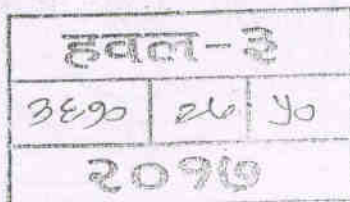 हवल-३
३६१० २७ ५०
२०१७